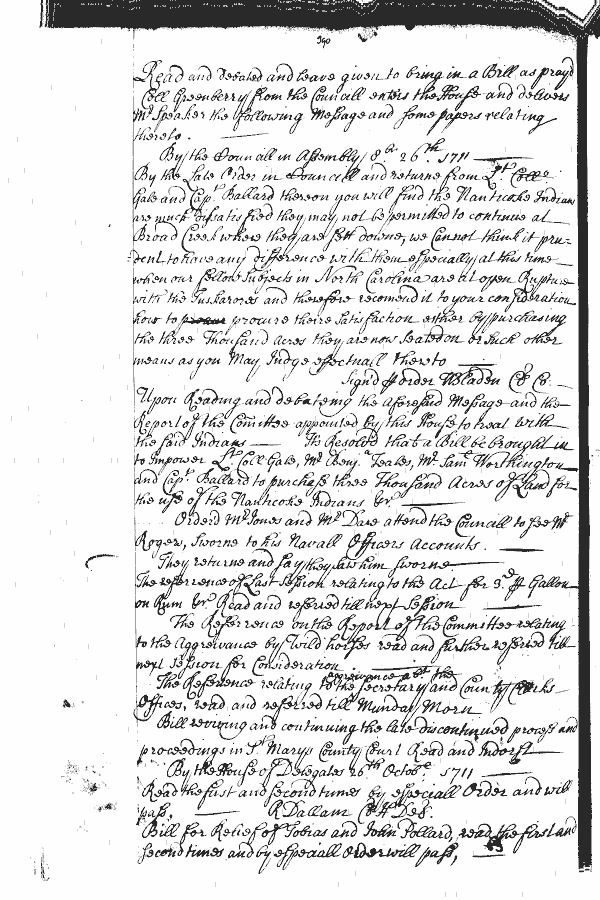 Read and debated and leave given to bring in a Bill as prayd
Coll Greenberry from the Councill enters the House and delivers
Mr Speaker the following Message and some papers relating
thereto.
By the Councill in Assembly 8br 26th. 1711
By the Late Order in Councill and returne from Lt. Colle
Gale and Capt. Ballard thereon you will find the Nanticoke Indians
are much dissatisfied they may not be permitted to continue at
Broad Creek where they are sett downe, we Cannot think it pru-
dent to have any difference with them especially at this time
when our fellow Subjects in North Carolina are at open Rupture
with the Tuskarores and therefore recomend it to your consideration
how to procure theire Satisfaction either by purchasing
the three Thousand acres they are now Seated on or such other
means as you May Judge effectuall thereto
Signd p order WBladen Cl Co.
Upon Reading and debateing the aforesaid Message and the
Report of the Comittee appointed by this House to treat with
the said Indians Its Resolved that a Bill be brought in
to impower Lt Coll Gale, Mr Benj.a Teales, Mr Saml Worthington
and Capt. Ballard to purchase three Thousand Acres of Land for
the use of the Nanticoke Indians &c.
Orderd Mr Jones and Mr Dare attend the Councill to see Mr
Rogers, Sworne to his Navall Officers Accounts.
They returne and say they saw him sworne
The referrence of Last Session relating to the Act for 3d p Gallon
on Rum &c. Read and referred till next Session
The Referrence on the Report of the Committee relating
to the Aggreivance by Wild horses read and further referred till
next Session for Consideration
aggreivance abt. the
The Reference relating to the Secretary and County Clerks
Offices, read and referred till Munday Morn
Bill reviving and continuing the late discontinued process and
proceedings in St Marys County Court Read and Indorst
By the House of Delegates 26th Octobr. 1711
Read the first and second times by especiall Order and will
pass, R Dallam Cl H Del.
Bill for Relief of Tobias and John Pollard, read the first and
second times and by especiall Order will pass,